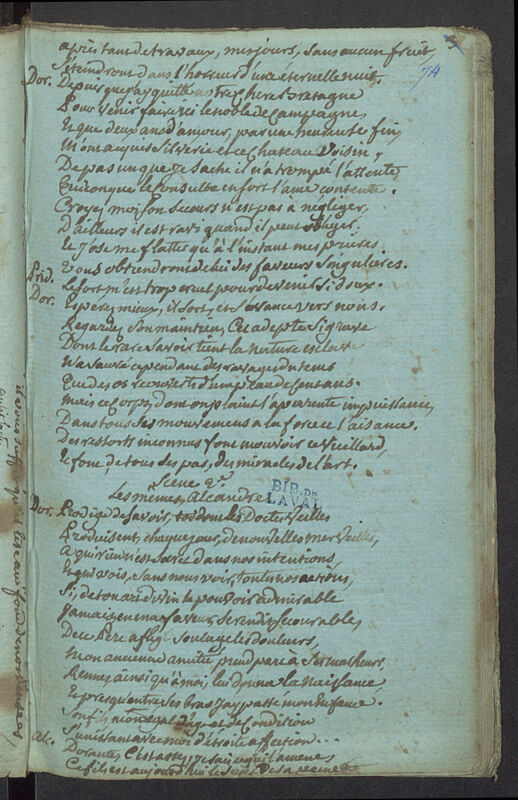 après tant de travaux, mes jours, sans aucun fruit
74
S'étendront dans l'horreur d'une éternelle nuit.
Dor. Depuis que j'ay quitté notre chere Bretagne
Pour venir faire ici le noble de campagne,
Et que deux ans d'amour, par une heureuse fin,
M'ont acquis Silverie et ce chateau voisin,
De pas un que je sache il n'a trompé l'attente,
Quiconque le consulte en sort l'ame contente.
Croyez moi, son secours n'est pas à négliger,
D'ailleurs il est ravi quand il peut obliger,
Et j'ose me flatter qu'à l'instant mes prieres
Vous obtiendront de lui des faveurs singulieres.
Prid. Le sort m'est trop cruel pour devenir si doux.
Dor. Esperez mieux, il sort, et s'avance vers nous.
Regardez son maintien, Cet adepte si grave
Dont le rare savoir tient la nature esclave
N'a sauvé cependant des ravages du tems
Que des os recouverts d'une peau de cent ans.
Mais ce corps, dont on plaint l'aparente impuissance,
Dans tous ses mouvemens a la force et l'aisance.
Des ressorts inconnus font mouvoir ce vieillard,
Et font, de tous ses pas, des miracles de l'art.
Scene 2e.
Les mêmes, Alcandre
BIB. DE
LAVAL
Dor. Prodige de savoir, dont les doctes veilles
Produisent, chaque jour, de nouvelles merveilles,
A qui rien n'est secret dans nos intentions,
Et qui vois, sans nous voir, toutes nos actions,
Si, de ton art divin le pouvoir admirable
Jamais en ma faveur se rendit secourable,
De ce Pere affligé soulage les douleurs,
Mon ancienne amitié prend part à ses malheurs,
Rennes, ainsi qu'à moi, lui donna la naissance,
Et presqu'entre ses bras j'ay passé mon enfance.
Son fils mon égal d'âge et de condition
S'unissant avec moi d'étroite affection...
Alc. Dorante, c'est assez, je sais ce qui l'amene,
Ce fils est aujourd'hui le sujet de sa peine